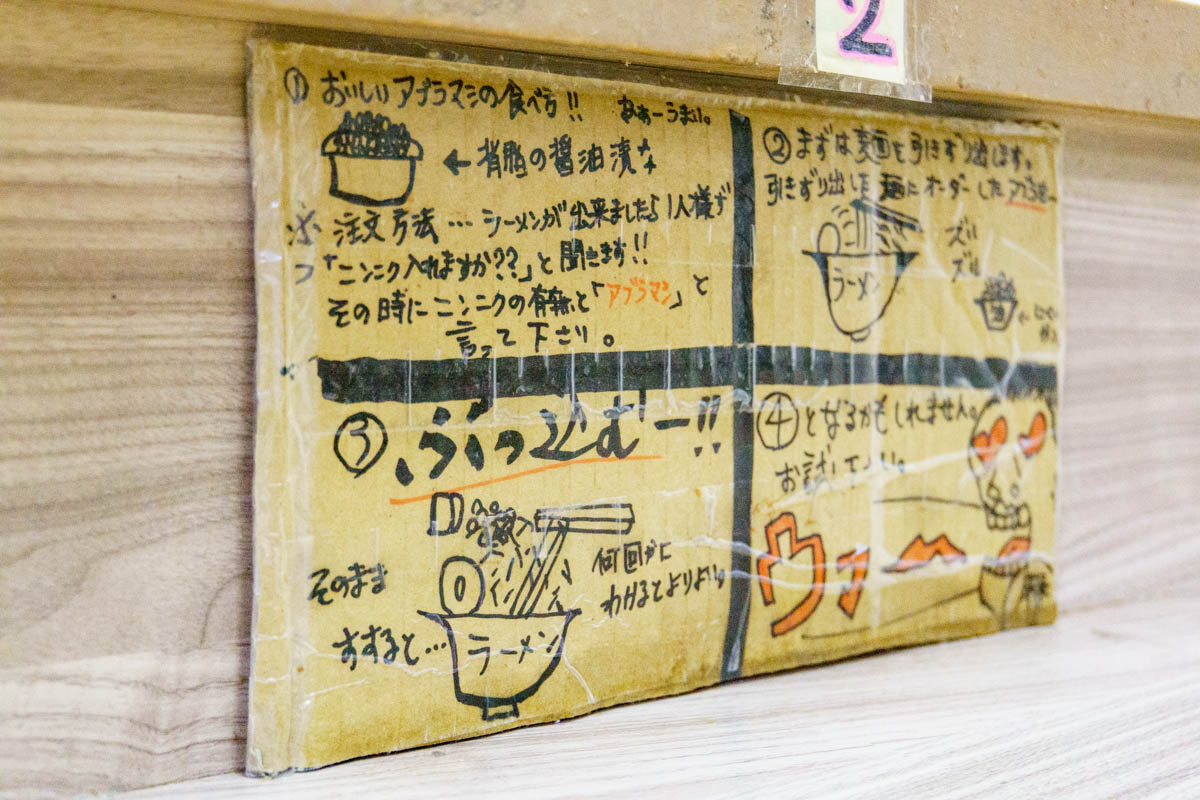 2
① おいしいアブラマシの食べ方!!
なぁーうまい。
← 背脂の醤油漬な
※ 注文方法…ラーメンが出来ましたら1人様ず
つ「ニンニク入れますか??」と聞きます!!
その時にニンニクの有無と「アブラマシ」と
言って下さい。
② まずは麺を引きずり出します。
引きずり出した麺にオーダーした
ズル
ズル
ラーメン
③ ぶっこむー!!
そのまま
すすると…
何回かに
わけるとよりよい。
ラーメン
④ となるかもしれません。
お試し下さい。
ウマー